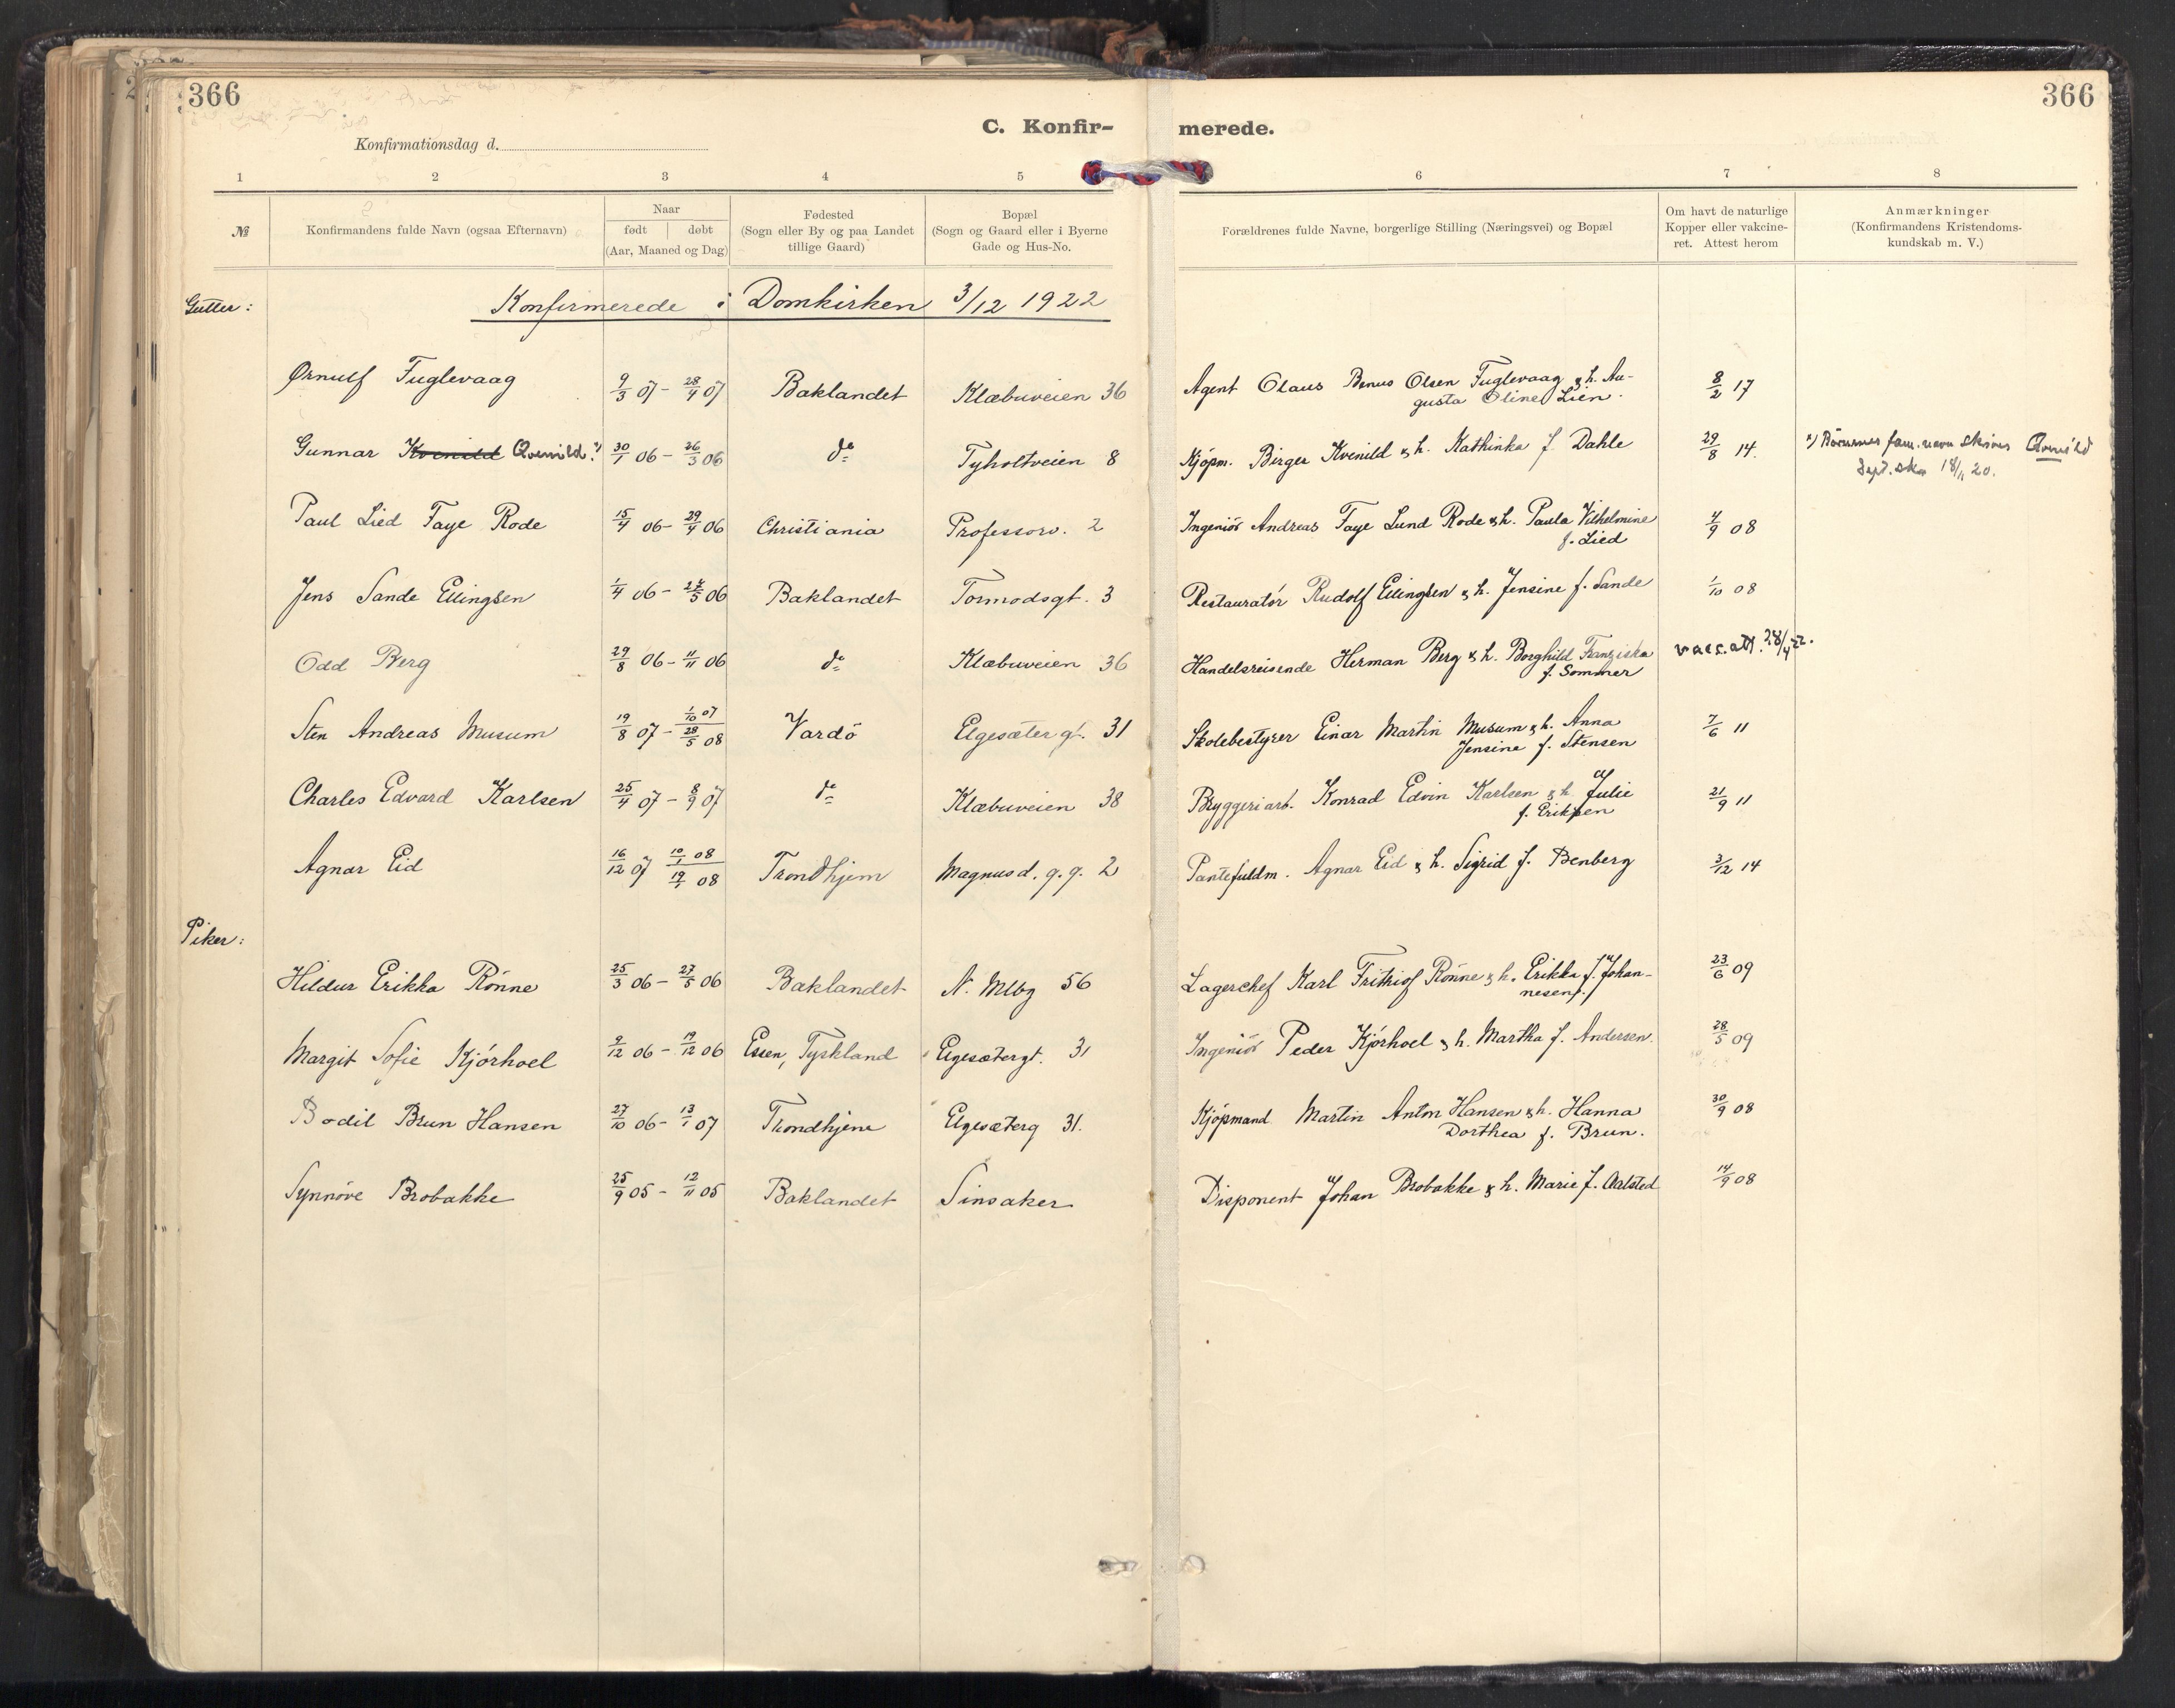 366
366
C. Konfir-
merede.
Konfirmationsdag d.
1 2 3 4 5 6 7 8
№
Konfirmandens fulde Navn (ogsaa Efternavn)
Naar
født døbt
(Aar, Maaned og Dag)
Fødested
(Sogn eller By og paa Landet
tillige Gaard)
Bopæl
(Sogn og Gaard eller i Byerne
Gade og Hus-No.
Forældrenes fulde Navne, borgerlige Stilling (Næringsvei) og Bopæl
Om havt de naturlige
Kopper eller vakcine-
ret. Attest herom
Anmærkninger
(Konfirmandens Kristendoms-
kundskab m. V.)
Gutter:
Konfirmerede i Domkirken 3/12 1922
Ørnulf Fuglevaag 9/3 07 - 28/4 07 Baklandet Klæbuveien 36 Agent Olaus Benus Olsen Fuglevaag & h. Au-
gusta Oline Lien. 8/2 17
Gunnar Kvenild Qvenild. x) 30/1 06 - 26/3 06 do Tyholtveien 8 Kjöpm. Birger Kvenild & h. Kathinka f. Dahle 29/8 14. x) fam. navn skrives Qvenild
18/11 20.
Paul Lied Faye Rode 15/4 06 - 29/4 06 Christiania Professorv. 2 Ingeniör Andreas Faye Lund Rode & h. Paula Vilhelmine
f. Lied 4/9 08
Jens Sande Ellingsen 1/4 06 - 24/5 06 Baklandet Tormodsgt. 3 Restauratör Rudolf Ellingsen & h. Jensine f. Sande 1/10 08
Odd Berg 29/8 06 - 11/11 06 do Klæbuveien 36 Handelsreisende Herman Berg & h. Borghild Franziska
f. Sommer vacc. att. 28/4 22.
Sten Andreas Musum 19/8 07 - 1/10 07
28/5 08 Vardö Elgesæter gt. 31 Skolebestyrer Einar Martin Musum & h. Anna
Jensine f. Stensen 7/6 11
Charles Edvard Karlsen 25/4 07 - 8/9 07 do Klæbuveien 38 Bryggeriarb. Konrad Edvin Karlsen & h. Julie
f. Eriksen 21/9 11
Agnar Eid 16/12 07 10/1 08
19/1 08 Trondhjem Magnus d. g. g. 2 Pantefuldm. Agnar Eid & h. Sigrid f. Benberg 3/12 14
Piker:
Hildur Erikka Rönne 25/3 06 - 27/5 06 Baklandet N. Mlbg 56 Lagerchef Karl Frithiof Rönne & h. Erikka f. Johan-
nesen. 23/6 09
Margit Sofie Kjörhoel 9/12 06 - 19/12 06 Essen, Tyskland Elgesætergt. 31 Ingeniör Peder Kjörhoel & h. Martha f. Andersen. 28/5 09
Bodil Brun Hansen 27/10 06 - 13/1 07 Trondhjem Elgesæterg 31. Kjöpmand Martin Anton Hansen & h. Hanna
Dorthea f. Brun. 30/9 08
Synnöve Brobakke 25/9 05 - 12/11 05 Baklandet Sinsaker Disponent Johan Brobakke & h. Marie f. Aalsted 14/9 08